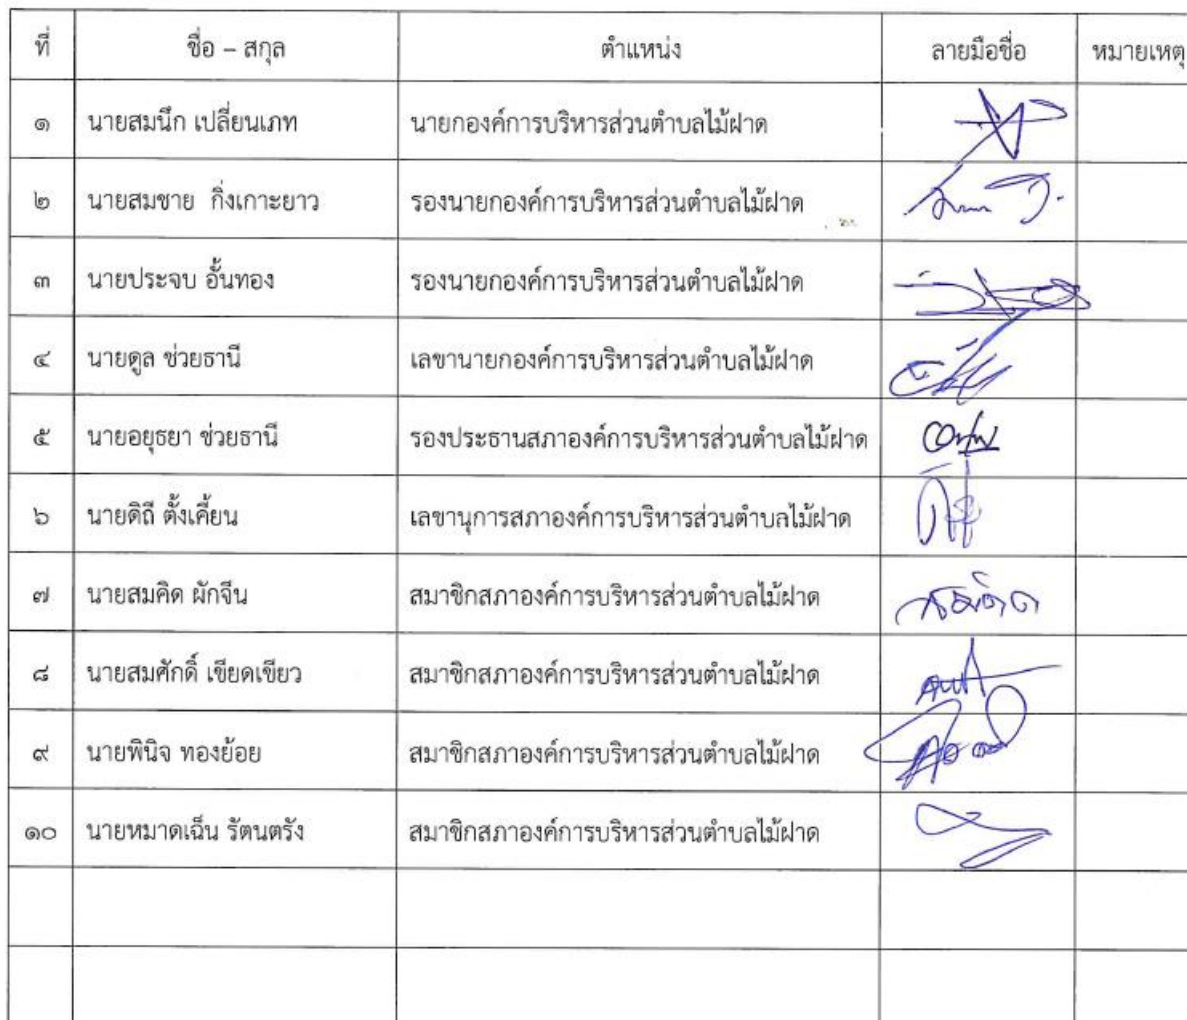 ที่ ชื่อ – สกุล ตำแหน่ง ลายมือชื่อ หมายเหตุ
๑ นายสมนึก เปลี่ยนเภท นายกองค์การบริหารส่วนตำบลไม้ฝาด
๒ นายสมชาย กิ่งเกาะยาว รองนายกองค์การบริหารส่วนตำบลไม้ฝาด
๓ นายประจบ อั้นทอง รองนายกองค์การบริหารส่วนตำบลไม้ฝาด
๔ นายดูล ช่วยธานี เลขานายกองค์การบริหารส่วนตำบลไม้ฝาด
๕ นายอยุธยา ช่วยธานี รองประธานสภาองค์การบริหารส่วนตำบลไม้ฝาด
๖ นายดิถี ตั้งเคี้ยน เลขานุการสภาองค์การบริหารส่วนตำบลไม้ฝาด
๗ นายสมคิด ผักจีน สมาชิกสภาองค์การบริหารส่วนตำบลไม้ฝาด สมคิด
๘ นายสมศักดิ์ เขียดเขียว สมาชิกสภาองค์การบริหารส่วนตำบลไม้ฝาด
๙ นายพินิจ ทองย้อย สมาชิกสภาองค์การบริหารส่วนตำบลไม้ฝาด
๑๐ นายหมาดเฉ็น รัตนตรัง สมาชิกสภาองค์การบริหารส่วนตำบลไม้ฝาด